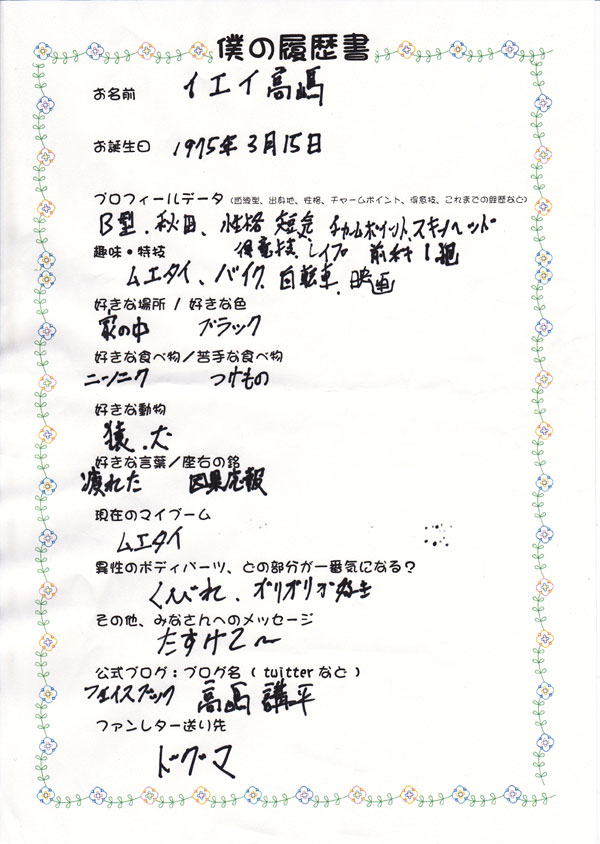 僕の履歴書
お名前 イエイ高嶋
お誕生日 1975年3月15日
プロフィールデータ (血液型、出身地、性格、チャームポイント、得意技、これまでの経歴など)
B型、秋田、性格 短気 チャームポイント、スキンヘッド
趣味・特技 得意技、レイプ 前科1犯
ムエタイ、バイク、自転車、映画
好きな場所 / 好きな色
家の中 ブラック
好きな食べ物/苦手な食べ物
ニンニク つけもの
好きな動物
猿、犬
好きな言葉/座右の銘
潰れた 因果応報
現在のマイブーム
ムエタイ
異性のボディパーツ、どの部分が一番気になる?
くびれ、ガリガリが好き
その他、みなさんへのメッセージ
たすけて〜
公式ブログ:ブログ名 ( twitterなど )
フェイスブック 高嶋 講平
ファンレター送り先
ドグマ